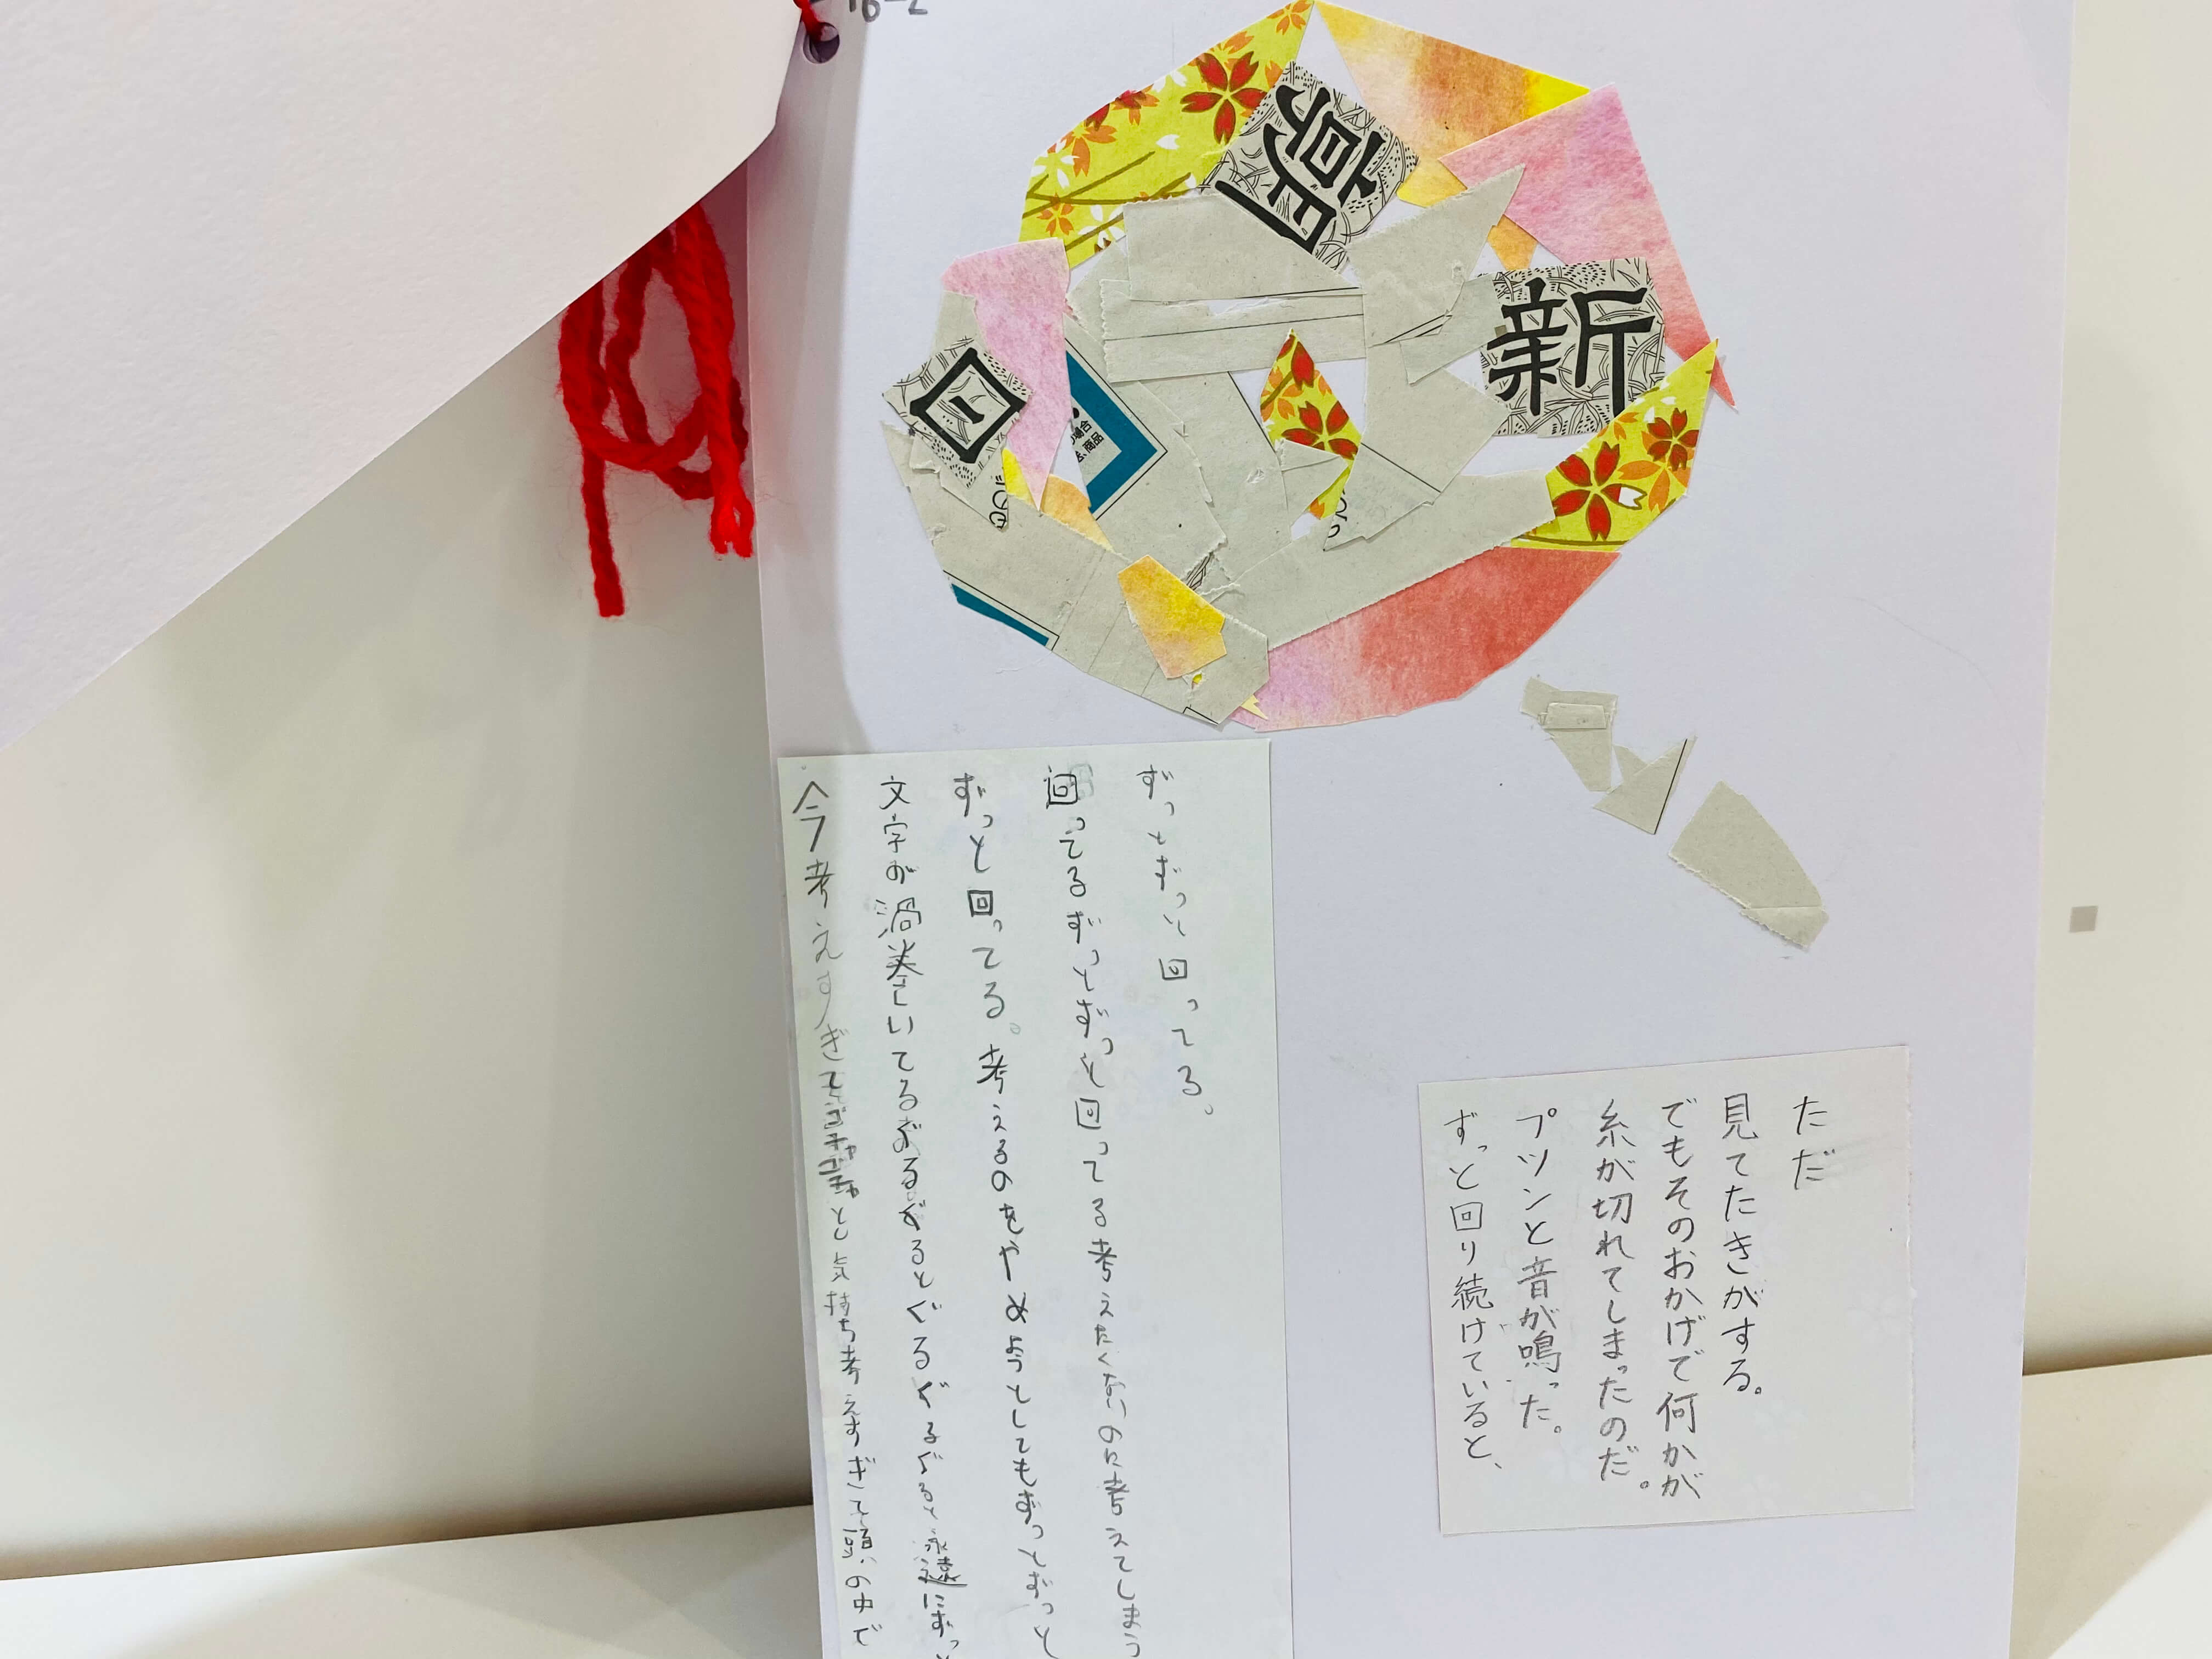 16-2
朝
新
日
の場合
、商品
今考えすぎてゴチャゴチャと気持ち考えすぎて頭の中で
文字が渦巻いてるぐるぐるとぐるぐるぐると永遠にずっと
ずっと回ってる。考えるのをやめようとしてもずっとずっと
回ってるずっとずっと回ってる考えたくないのに考えてしまう
ずっとずっと回ってる。
ずっと回り続けていると、
プツンと音が鳴った。
糸が切れてしまったのだ。
でもそのおかげで何かが
見てたきがする。
ただ